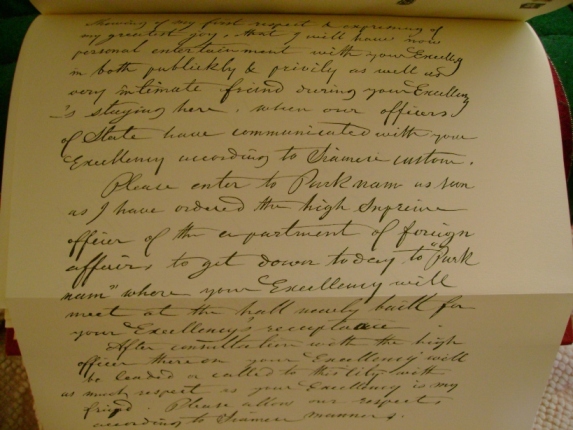 showing of my first respect & expressing of
my greatest joy, that I will have now
personal entertainment with your Excellency
in both publickly & privily as well as
very intimate friend during your Excellency
's staying here, when our officers
of State have communicated with your
Excellency according to Siamese custom.
Please enter to Paknam as soon
as I have ordered the high Supreme
officer of the department of foreign
affairs to get down today to "Pak
nam" where your Excellency will
meet at the hall newly built for
your Excellency's
After consultation with the high
officer there on your Excellency will
be leaded or called to this city with
as much respect as your Excellency is my
friend. Please allow our respects
according to Siamese manners.